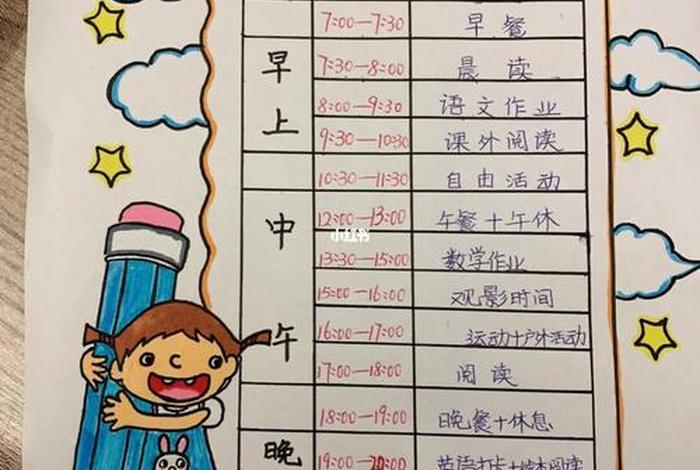 7:00—7:30 早餐
早上
7:30—8:00 晨读
8:00—9:30 语文作业
9:30—10:30 课外阅读
10:30—11:30 自由活动
中午
12:00—13:00 午餐+午休
13:30—15:00 数学作业
15:00—16:00 观影时间
16:00—17:00 运动+户外活动
17:00—18:00 阅读
18:00—19:00 晚餐+休息
晚
19:00—20:00 英语打卡+绘本阅读
小红书